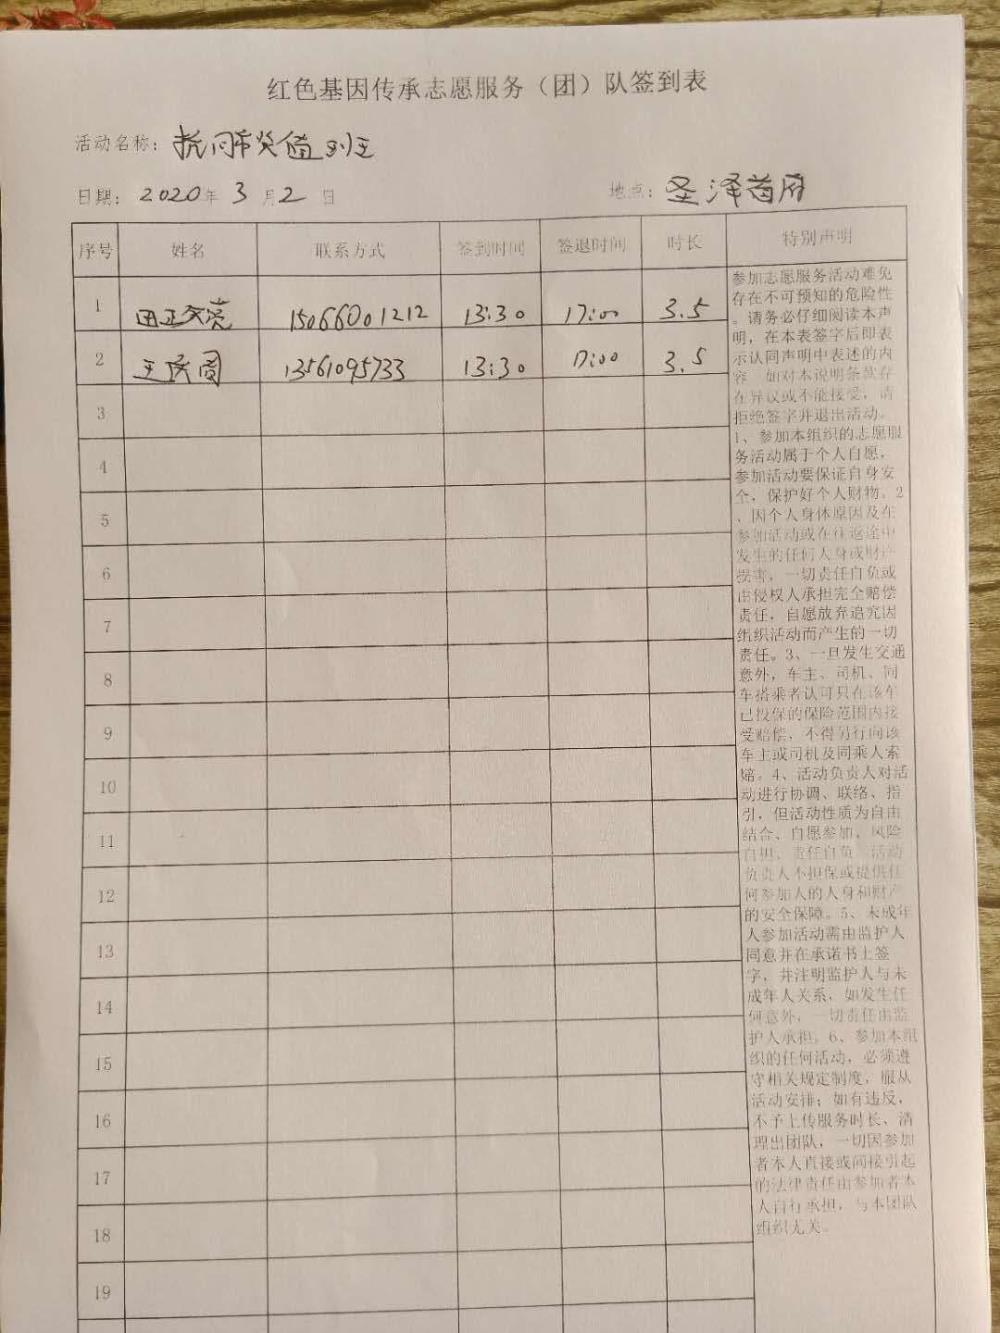 红色基因传承志愿服务（团）队签到表
活动名称：
日期：2020年 3 月 2 日 地点：圣泽首府
序号 姓名 联系方式 签到时间 签退时间 时长 特别声明
1 15066001212 13:30 17:00 3.5
2 13561095733 13:30 17:00 3.5
3
4
5
6
7
8
9
10
11
12
13
14
15
16
17
18
19
参加志愿服务活动难免
存在不可预知的危险性
。请务必仔细阅读本声
明，在本表签字后即表
示认同声明中表述的内
容。如对本说明条款存
在异议或不能接受，请
拒绝签字并退出活动。
1、参加本组织的志愿服
务活动属于个人自愿，
参加活动要保证自身安
全，保护好个人财物。2
、因个人身体原因及在
参加活动或在往返途中
发生的任何人身或财产
损害，一切责任自负或
由侵权人承担完全赔偿
责任，自愿放弃追究因
组织活动而产生的一切
责任。3、一旦发生交通
意外，车主、司机、同
车搭乘者认可只在该车
已投保的保险范围内接
受赔偿，不得另行向该
车主或司机及同乘人索
赔。4、活动负责人对活
动进行协调、联络、指
引，但活动性质为自由
结合、自愿参加、风险
自担、责任自负。活动
负责人不担保或提供任
何参加人的人身和财产
的安全保障。5、未成年
人参加活动需由监护人
同意并在承诺书上签
字，并注明监护人与未
成年人关系，如发生任
何意外，一切责任由监
护人承担。6、参加本组
织的任何活动，必须遵
守相关规定制度，服从
活动安排；如有违反，
不予上传服务时长、清
理出团队，一切因参加
者本人直接或间接引起
的法律责任由参加者本
人自行承担，与本团队
组织无关。